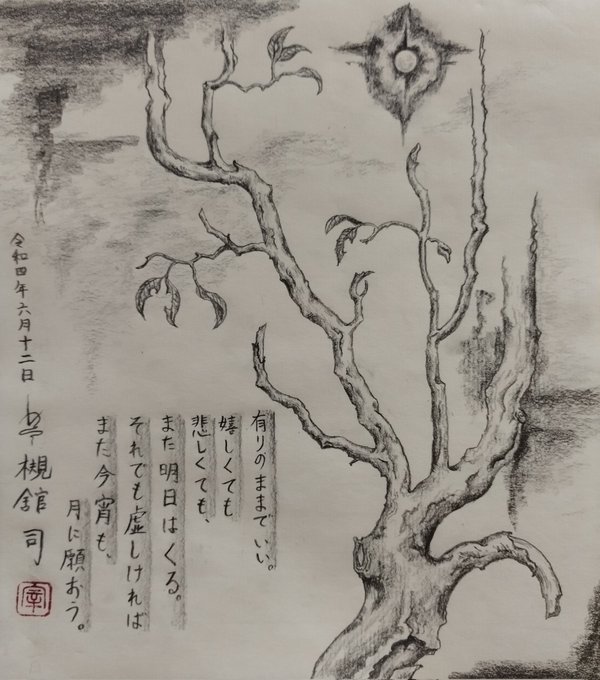 有りのままでいい。
嬉しくても
悲しくても、
また明日はくる。
それでも虚しければ
また今宵も、
月に願おう。
令和四年六月十二日
槻舘 司